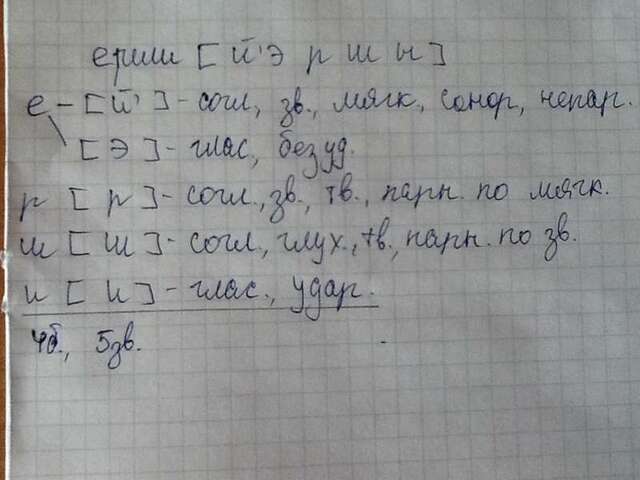 ерши [ й' э р ш ы ]
е - [ й' ] - согл, зв., мягк, сонор, непар.
[ э ] - глас, безуд.
р [ р ] - согл., зв., тв., парн. по мягк.
ш [ ш ] - согл., глух., тв., парн. по зв.
и [ и ] - глас., удар.
4б., 5зв.